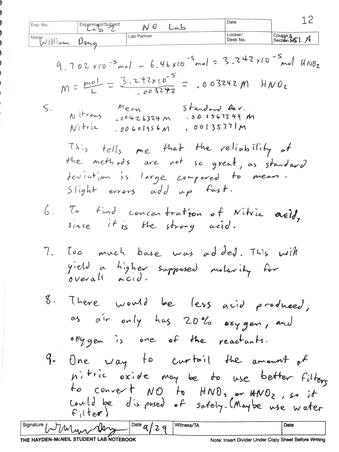 12
Exp. No. Experiment/Subject Lab 2 NO Lab Date
Name William Dong Lab Partner Locker/Desk No. Course & Section No.
9.702 x10⁻⁵ mol - 6.46 x10⁻⁵ mol = 3.242 x10⁻⁵ mol HNO₂
M = mol/L = 3.242x10⁻⁵/.003242 = .003242 M HNO₂
5. Mean Standard Dev.
Nitrous .00426324 M .001567549 M
Nitric .00601956 M .00135771 M
This tells me that the reliability of
the methods are not so great, as standard
deviation is large compared to mean.
Slight errors add up fast.
6. To find concentration of Nitric acid,
since it is the strong acid.
7. Too much base was added. This will
yield a higher supposed molarity for
overall acid.
8. There would be less acid produced,
as air only has 20% oxygen, and
oxygen is one of the reactants.
9. One way to curtail the amount of
nitric oxide may be to use better filters
to convert NO to HNO₃ or HNO₂, so it
could be disposed of safely. (Maybe use water
filter)
Signature William Dong Date 9/29 Witness/TA Date
THE HAYDEN-McNEIL STUDENT LAB NOTEBOOK Note: Insert Divider Under Copy Sheet Before Writing